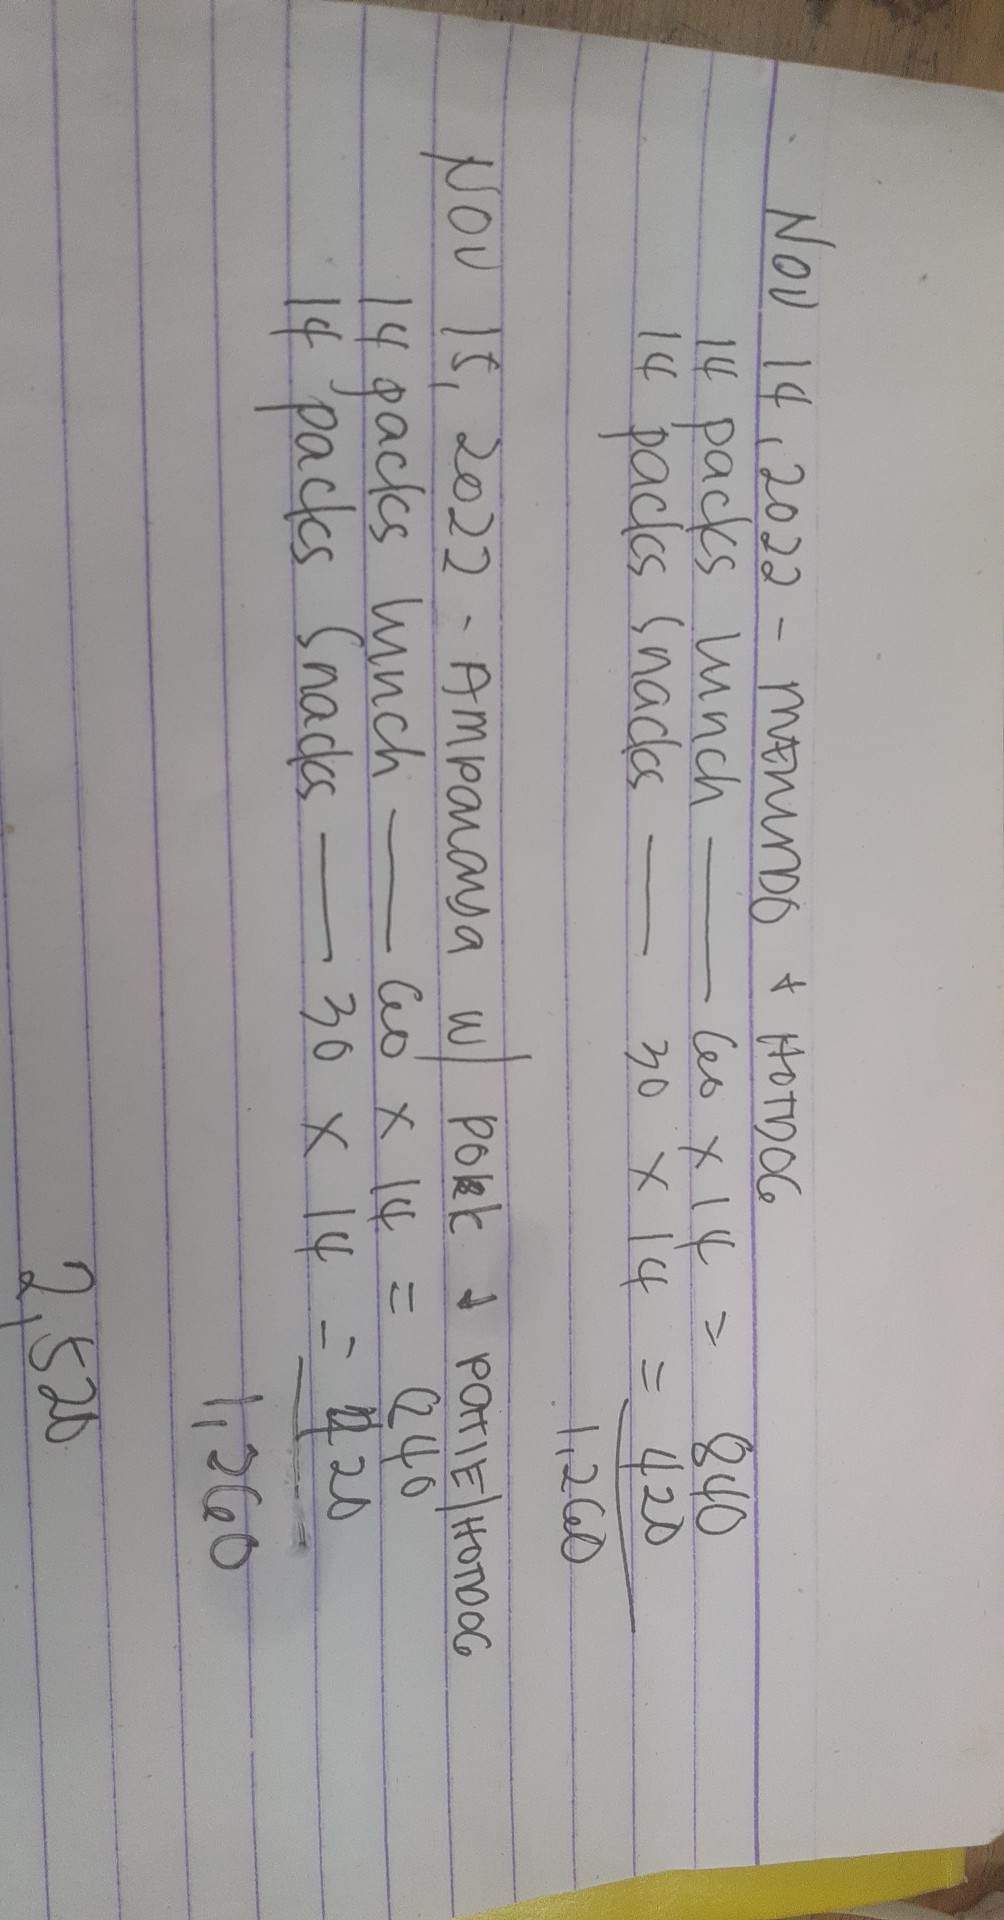 Nov 14, 2022 - MENUDO + HOTDOG
14 packs lunch — 60 x 14 = 840
14 packs snacks — 30 x 14 = 420
1,260
Nov 15, 2022 - AMPALAYA W/ PORK + PATTIE/HOTDOG
14 packs lunch — 60 x 14 = 840
14 packs snacks — 30 x 14 = 420
1,260
2,520